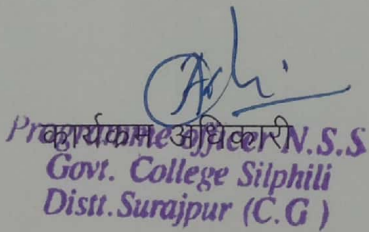 कार्यक्रम अधिकारी
Programme Officer N.S.S
Govt. College Silphili
Distt. Surajpur (C.G)